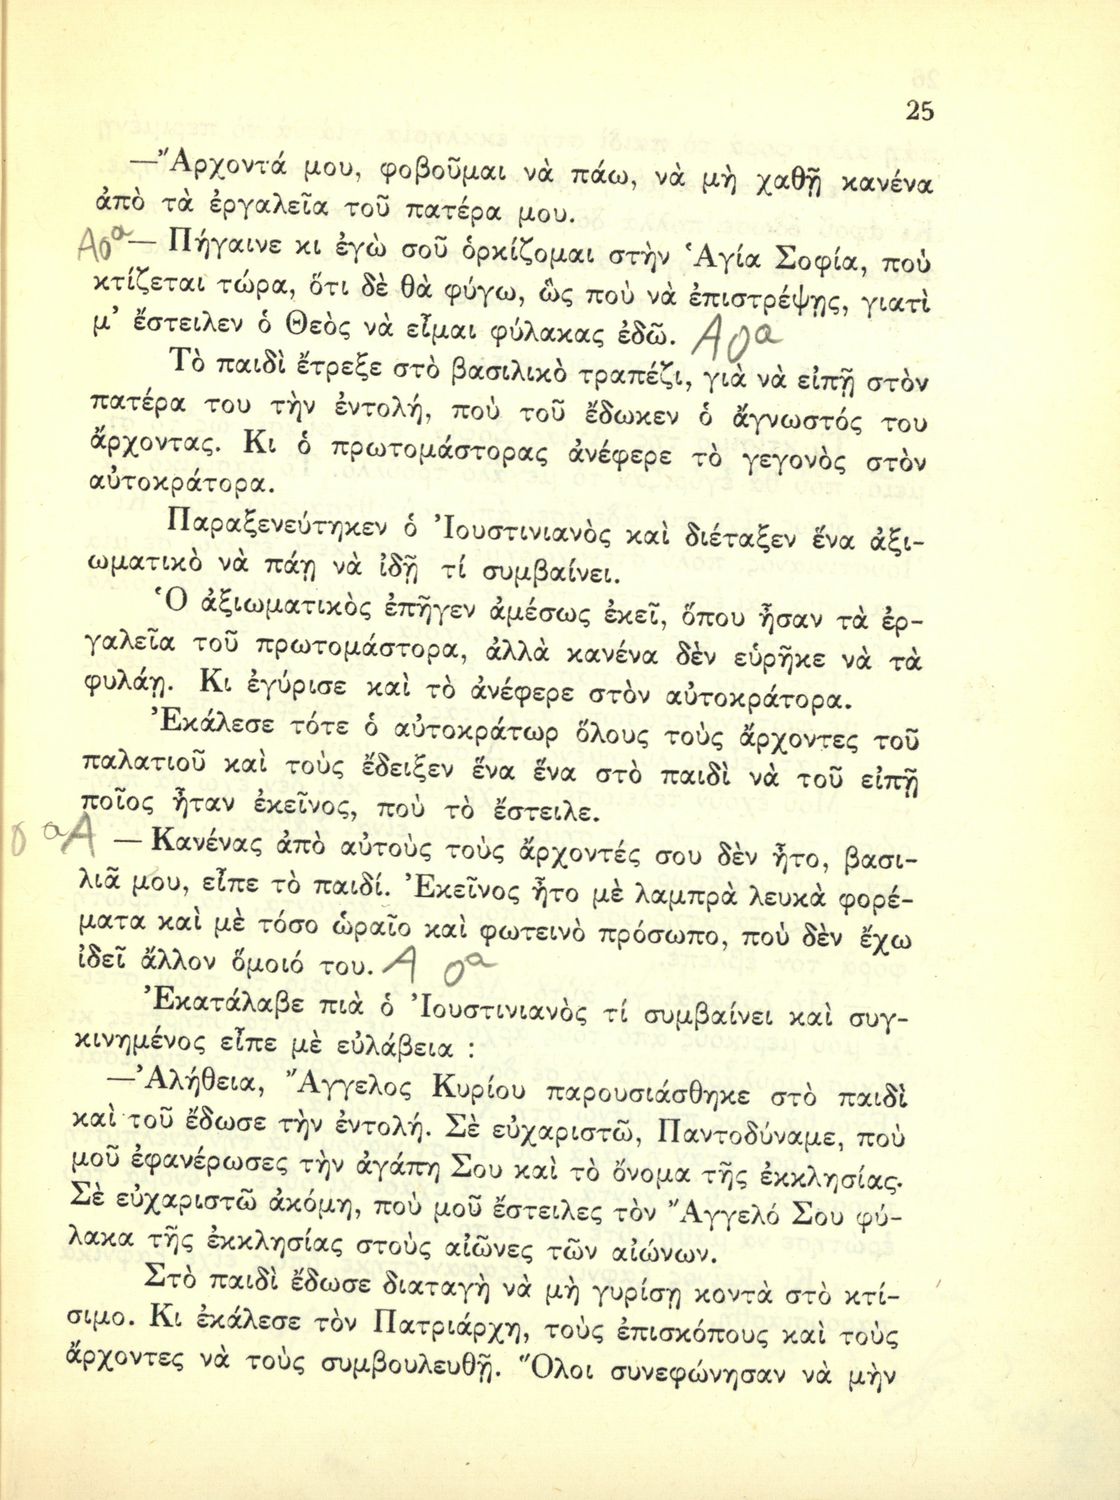 25
—Ἄρχοντά μου, φοβοῦμαι νὰ πάω, νὰ μὴ χαθῇ κανένα
ἀπὸ τὰ ἐργαλεῖα τοῦ πατέρα μου.
— Πήγαινε κι ἐγὼ σοῦ ὁρκίζομαι στὴν Ἁγία Σοφία, ποὺ
κτίζεται τώρα, ὅτι δὲ θὰ φύγω, ὣς ποὺ νὰ ἐπιστρέψῃς, γιατὶ
μ' ἔστειλεν ὁ Θεὸς νὰ εἶμαι φύλακας ἐδῶ.
Τὸ παιδὶ ἔτρεξε στὸ βασιλικὸ τραπέζι, γιὰ νὰ εἰπῇ στὸν
πατέρα του τὴν ἐντολή, ποὺ τοῦ ἔδωκεν ὁ ἄγνωστός του
ἄρχοντας. Κι ὁ πρωτομάστορας ἀνέφερε τὸ γεγονὸς στὸν
αὐτοκράτορα.
Παραξενεύτηκεν ὁ Ἰουστινιανὸς καὶ διέταξεν ἕνα ἀξι-
ωματικὸ νὰ πάῃ νὰ ἰδῇ τί συμβαίνει.
Ὁ ἀξιωματικὸς ἐπῆγεν ἀμέσως ἐκεῖ, ὅπου ἦσαν τὰ ἐρ-
γαλεῖα τοῦ πρωτομάστορα, ἀλλὰ κανένα δὲν εὑρῆκε νὰ τὰ
φυλάῃ. Κι ἐγύρισε καὶ τὸ ἀνέφερε στὸν αὐτοκράτορα.
Ἐκάλεσε τότε ὁ αὐτοκράτωρ ὅλους τοὺς ἄρχοντες τοῦ
παλατιοῦ καὶ τοὺς ἔδειξεν ἕνα ἕνα στὸ παιδὶ νὰ τοῦ εἰπῇ
ποῖος ἦταν ἐκεῖνος, ποὺ τὸ ἔστειλε.
— Κανένας ἀπὸ αὐτοὺς τοὺς ἄρχοντές σου δὲν ἦτο, βασι-
λιᾶ μου, εἶπε τὸ παιδί. Ἐκεῖνος ἦτο μὲ λαμπρὰ λευκὰ φορέ-
ματα καὶ μὲ τόσο ὡραῖο καὶ φωτεινὸ πρόσωπο, ποὺ δὲν ἔχω
ἰδεῖ ἄλλον ὅμοιό του.
Ἐκατάλαβε πιὰ ὁ Ἰουστινιανὸς τί συμβαίνει καὶ συγ-
κινημένος εἶπε μὲ εὐλάβεια :
—Ἀλήθεια, Ἄγγελος Κυρίου παρουσιάσθηκε στὸ παιδὶ
καὶ τοῦ ἔδωσε τὴν ἐντολή. Σὲ εὐχαριστῶ, Παντοδύναμε, ποὺ
μοῦ ἐφανέρωσες τὴν ἀγάπη Σου καὶ τὸ ὄνομα τῆς ἐκκλησίας.
Σὲ εὐχαριστῶ ἀκόμη, ποὺ μοῦ ἔστειλες τὸν Ἄγγελό Σου φύ-
λακα τῆς ἐκκλησίας στοὺς αἰῶνες τῶν αἰώνων.
Στὸ παιδὶ ἔδωσε διαταγὴ νὰ μὴ γυρίσῃ κοντὰ στὸ κτί-
σιμο. Κι ἐκάλεσε τὸν Πατριάρχη, τοὺς ἐπισκόπους καὶ τοὺς
ἄρχοντες νὰ τοὺς συμβουλευθῇ. Ὅλοι συνεφώνησαν νὰ μὴν